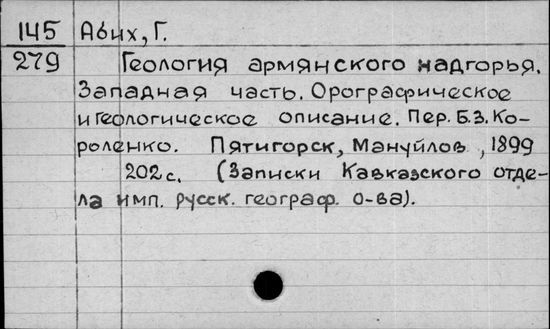 145 Абих, Г.
279 Геология армянского надгорья.
Западная часть. Орографическое
и геологическое описание. Пер. Б.З. Ко-
роленко. Пятигорск, Мануйлов, 1899
202 с. (Записки Кавказского отде-
ла имп. русск. географ. о-ва).